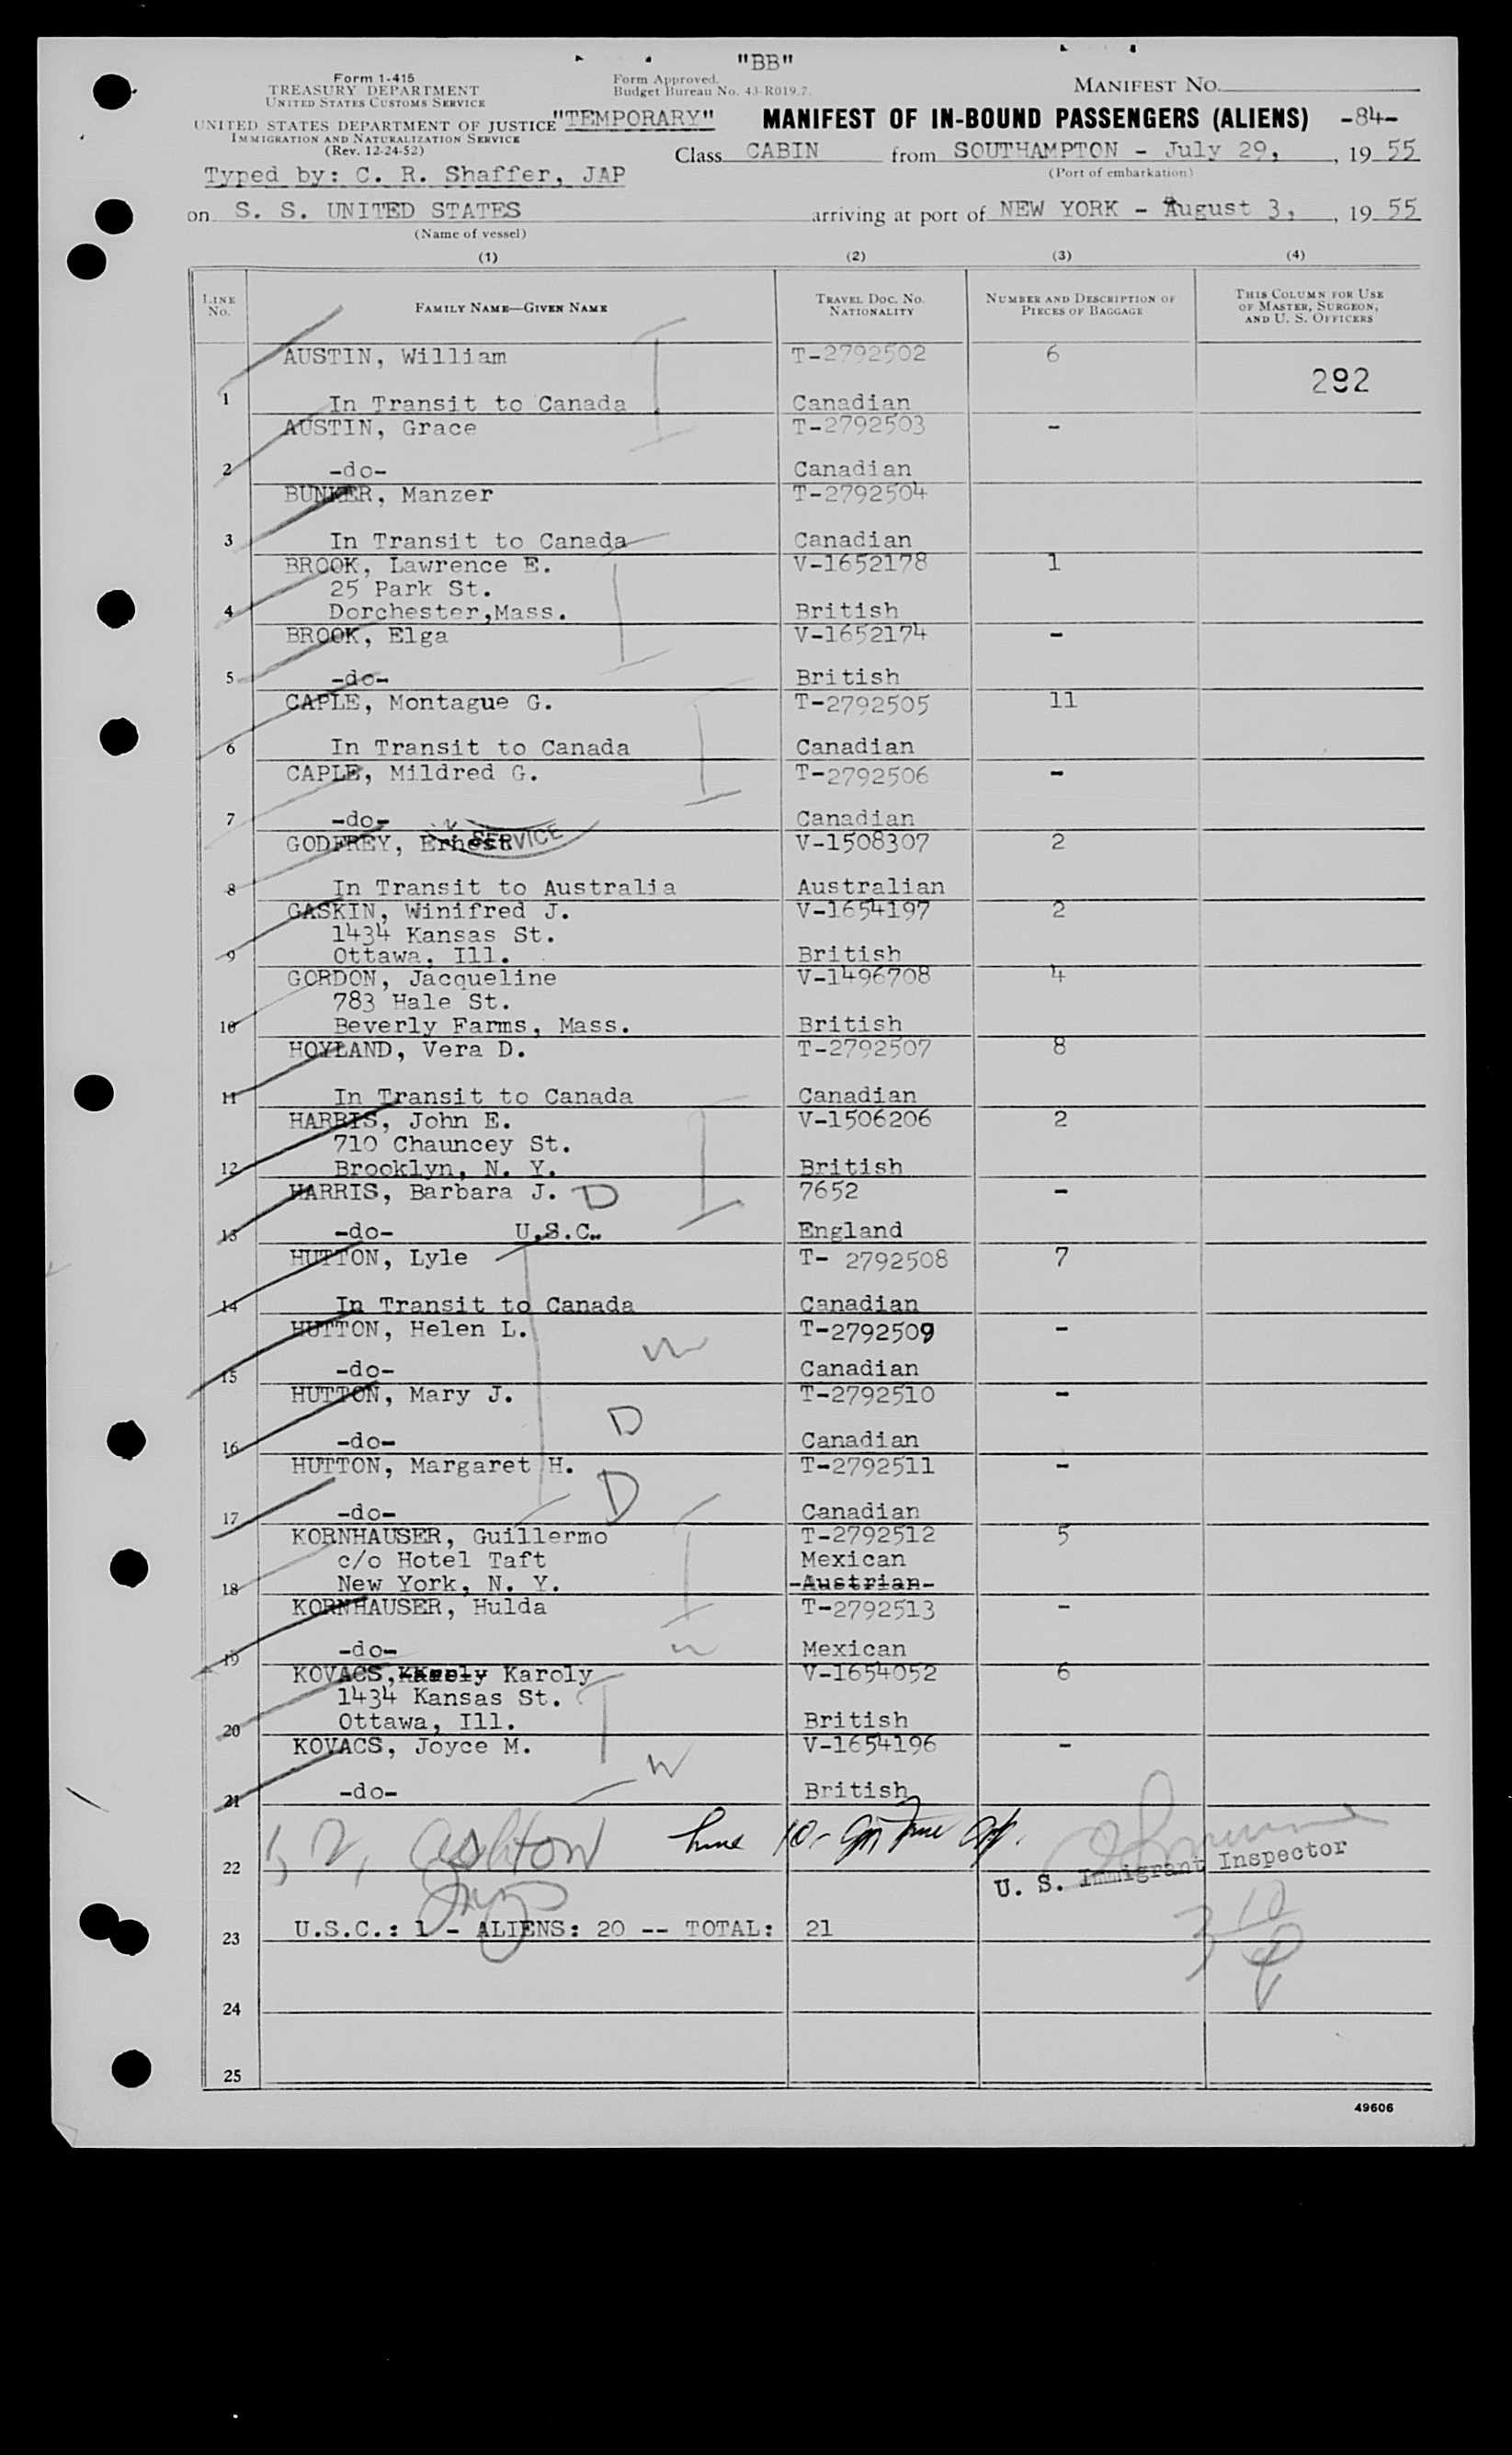 "BB"
Form 1-415
TREASURY DEPARTMENT
UNITED STATES CUSTOMS SERVICE
Form Approved.
Budget Bureau No. 43-R019.7.
MANIFEST NO.
UNITED STATES DEPARTMENT OF JUSTICE
IMMIGRATION AND NATURALIZATION SERVICE
(Rev. 12-24-52)
"TEMPORARY"
MANIFEST OF IN-BOUND PASSENGERS (ALIENS) -84-
Class CABIN from SOUTHAMPTON - July 29, , 19 55
(Port of embarkation)
Typed by: C. R. Shaffer, JAP
on S. S. UNITED STATES arriving at port of NEW YORK - August 3, , 19 55
(Name of vessel)
(1) (2) (3) (4)
LINE NO. FAMILY NAME—GIVEN NAME TRAVEL DOC. NO. NATIONALITY NUMBER AND DESCRIPTION OF PIECES OF BAGGAGE THIS COLUMN FOR USE OF MASTER, SURGEON, AND U. S. OFFICERS
AUSTIN, William T-2792502 6
282
1 In Transit to Canada Canadian
AUSTIN, Grace T-2792503 -
2 -do- Canadian
BUNKER, Manzer T-2792504
3 In Transit to Canada Canadian
BROOK, Lawrence E. V-1652178 1
25 Park St.
4 Dorchester,Mass. British
BROOK, Elga V-1652174 -
5 -do- British
CAPLE, Montague G. T-2792505 11
6 In Transit to Canada Canadian
CAPLE, Mildred G. T-2792506 -
7 -do- Canadian
SERVICE
GODFREY, Ernest V-1508307 2
8 In Transit to Australia Australian
GASKIN, Winifred J. V-1654197 2
1434 Kansas St.
9 Ottawa, Ill. British
GORDON, Jacqueline V-1496708 4
783 Hale St.
10 Beverly Farms, Mass. British
HOYLAND, Vera D. T-2792507 8
11 In Transit to Canada Canadian
HARRIS, John E. V-1506206 2
710 Chauncey St.
12 Brooklyn, N. Y. British
HARRIS, Barbara J. D 7652 -
13 -do- U.S.C. England
HUTTON, Lyle T- 2792508 7
14 In Transit to Canada Canadian
HUTTON, Helen L. T-2792509 -
15 -do- Canadian
HUTTON, Mary J. T-2792510 -
D
16 -do- Canadian
HUTTON, Margaret H. T-2792511 -
D
17 -do- Canadian
KORNHAUSER, Guillermo T-2792512 5
c/o Hotel Taft Mexican
18 New York, N. Y. -Austrian-
KORNHAUSER, Hulda T-2792513 -
19 -do- Mexican
KOVACS, Karoly V-1654052 6
1434 Kansas St.
20 Ottawa, Ill. British
KOVACS, Joyce M. V-1654196 -
W
21 -do- British
1, 2, Ashton
22 U. S. Immigrant Inspector
23 U.S.C.: 1 - ALIENS: 20 -- TOTAL: 21
24
25
49606